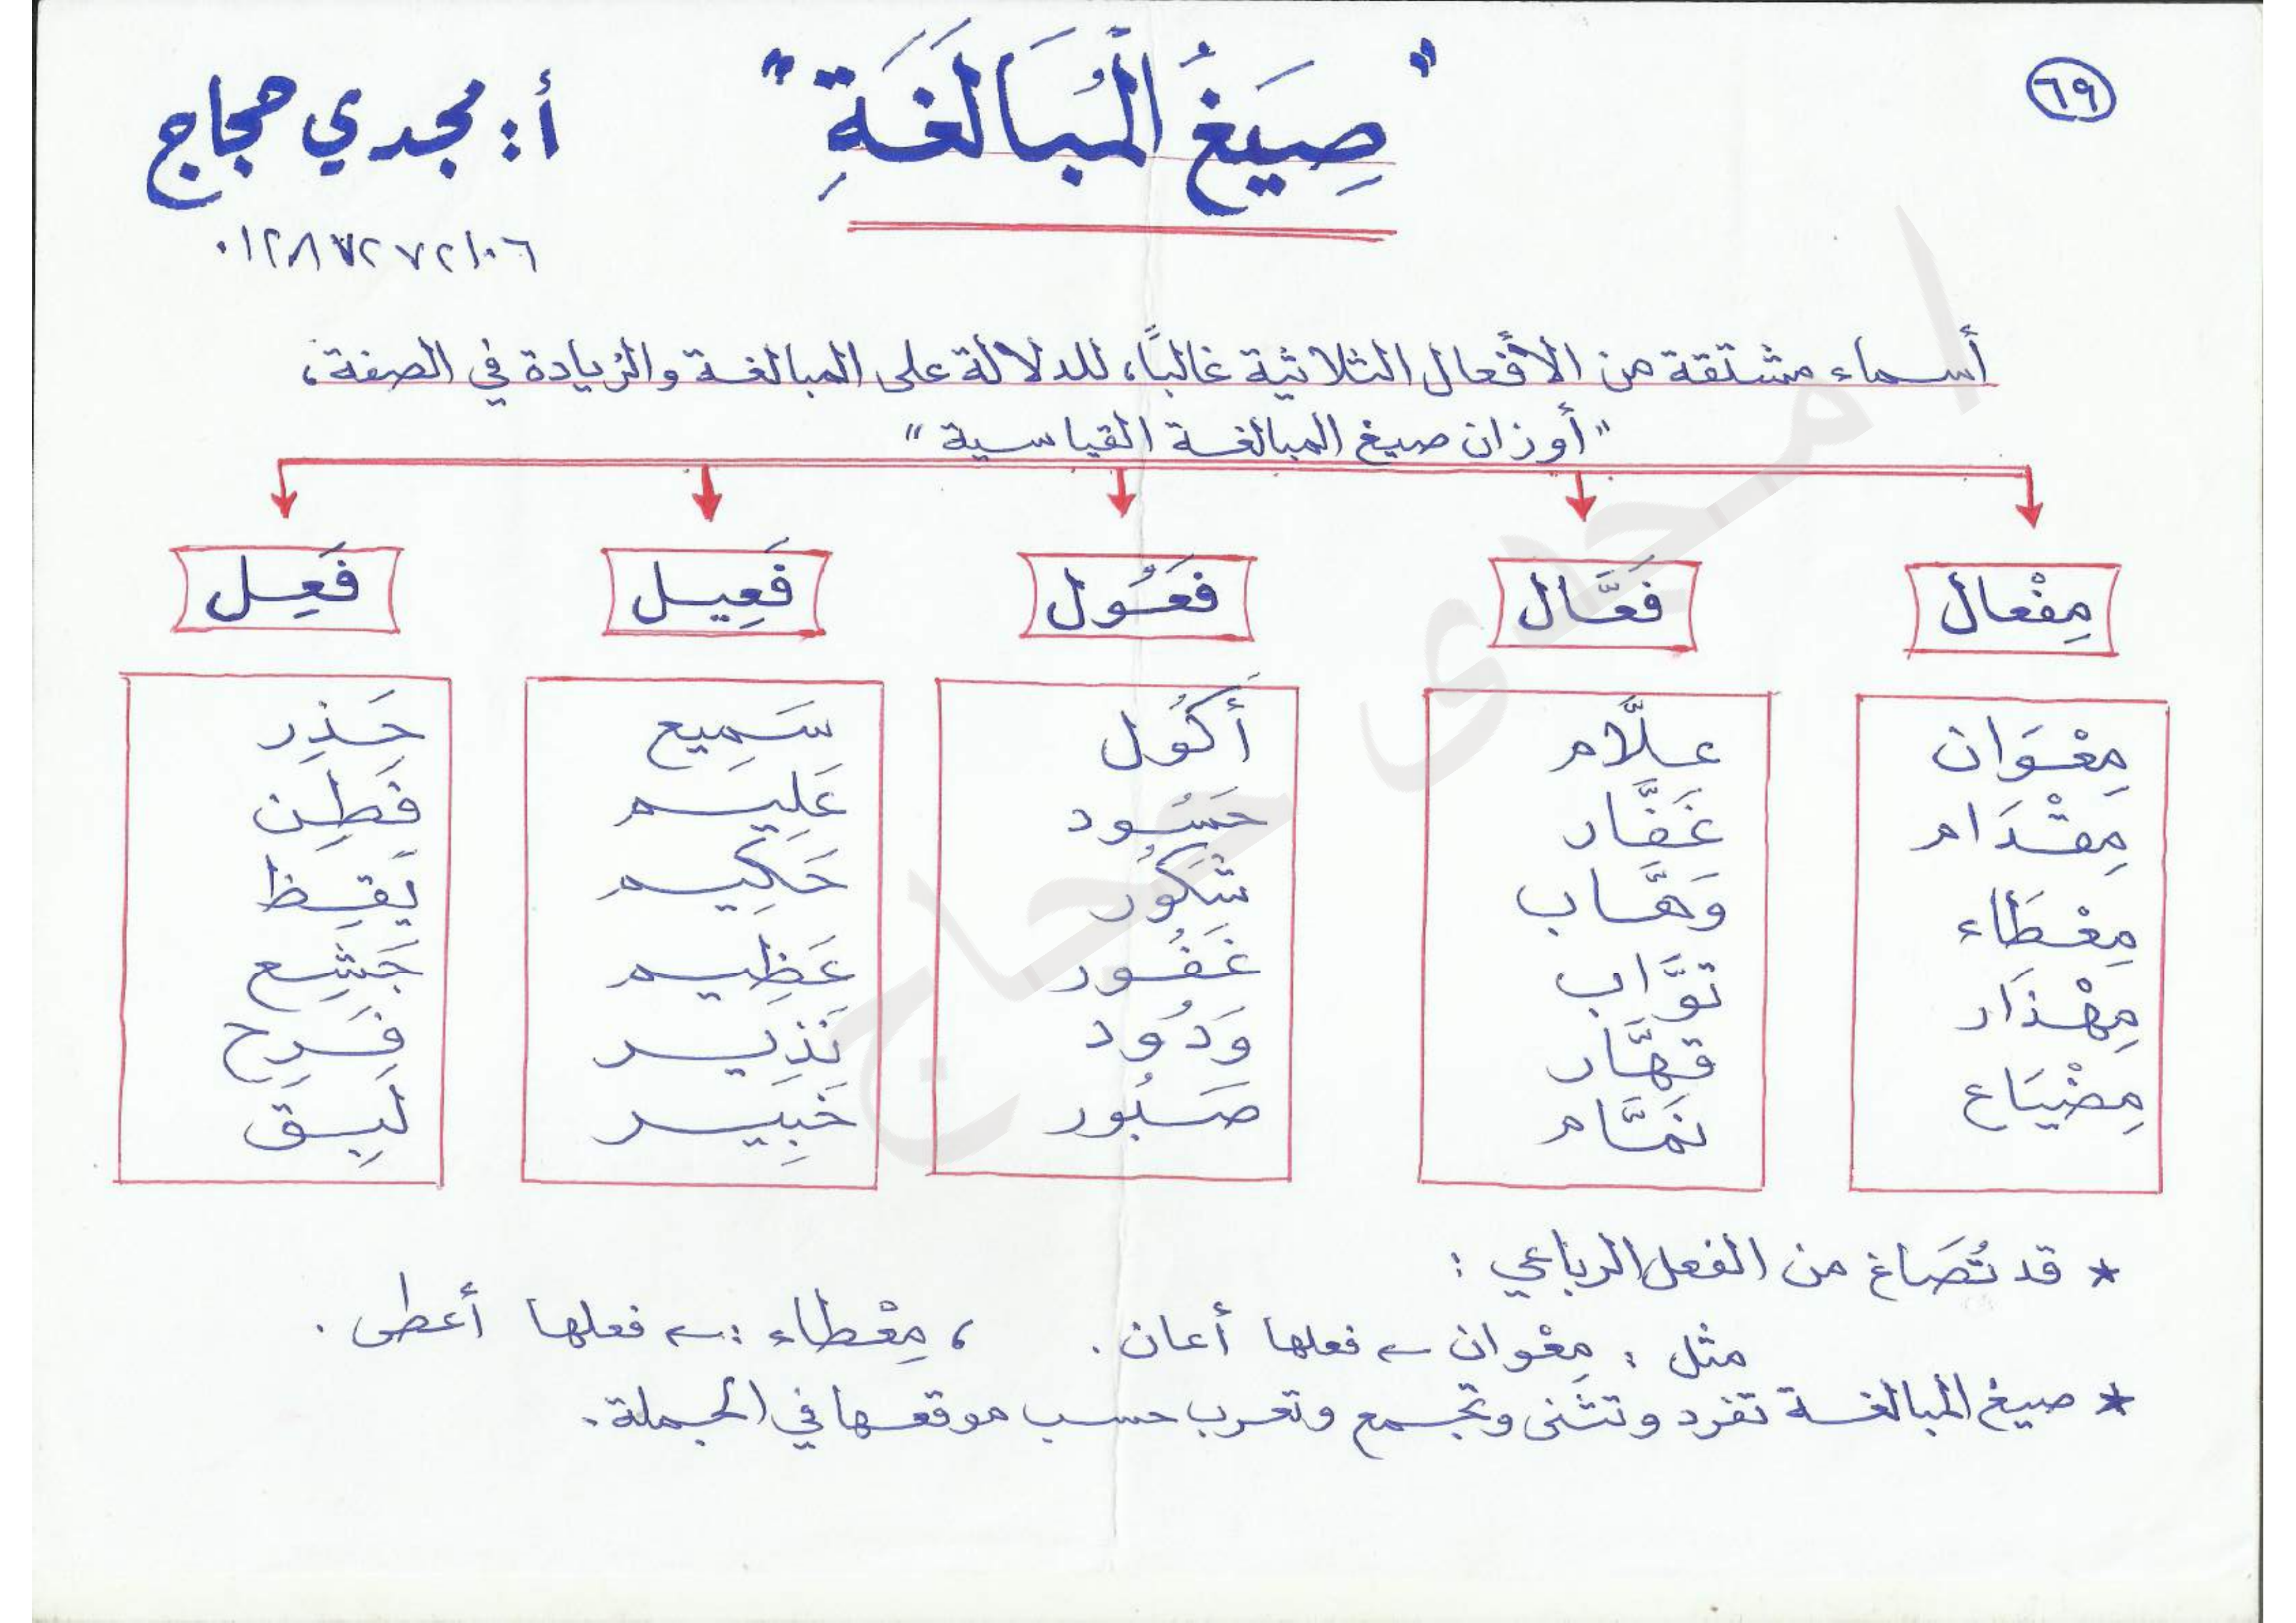 ٦٩
"صِيَغُ الْمُبَالَغَةِ"
أ: مجدي حجاج
٠١٢٨٧٢٧٢١٠٦
أسماء مشتقة من الأفعال الثلاثية غالبًا، للدلالة على المبالغة والزيادة في الصفة،
"أوزان صيغ المبالغة القياسية"
مِفْعال فَعَّال فَعُول فَعِيل فَعِل
مِعْوَان علَّام أَكُول سَمِيع حَذِر
مِقْدَام غَفَّار حَسُود عَلِيم فَطِن
مِعْطَاء وَهَّاب شَكُور حَكِيم يَقِظ
مِهْذَار توَّاب غَفُور عَظِيم جَشِع
مِضْيَاع قهَّار وَدُود نَذِير فَرِح
نمَّام صَبُور خَبِير لَبِق
* قد تُصَاغ من الفعل الرباعي :
مثل : مِعْوان ← فعلها أعان . ، مِعْطاء :← فعلها أعطى .
* صيغ المبالغة تفرد وتثنى وتجمع وتعرب حسب موقعها في الجملة .
امجدى حجاج